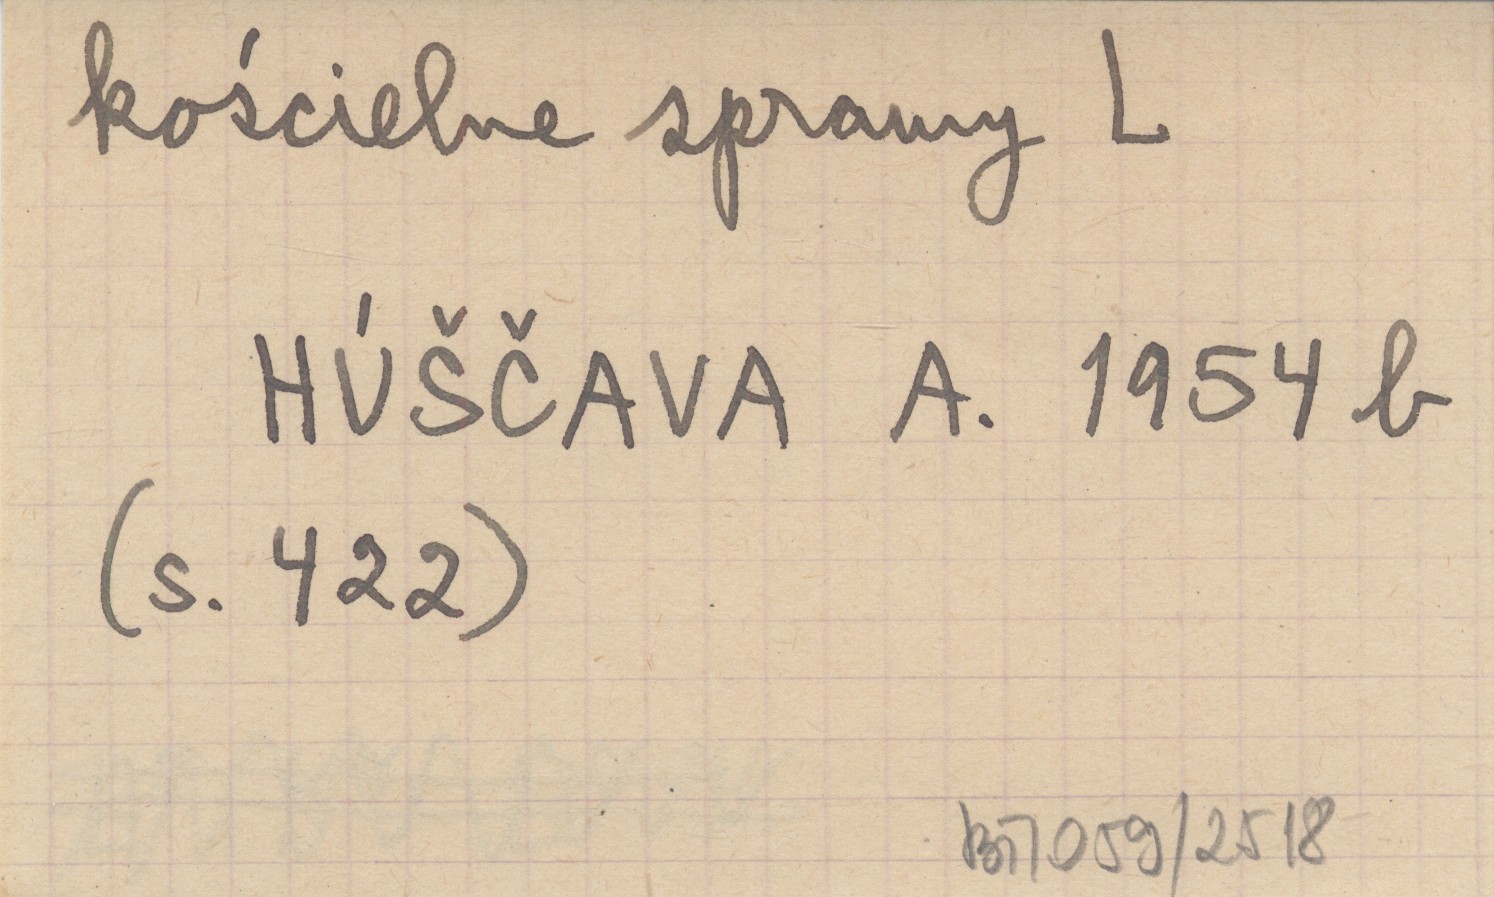 kościelne sprawy L
HÚŠČAVA A. 1954 b
(s. 422)
059/2518